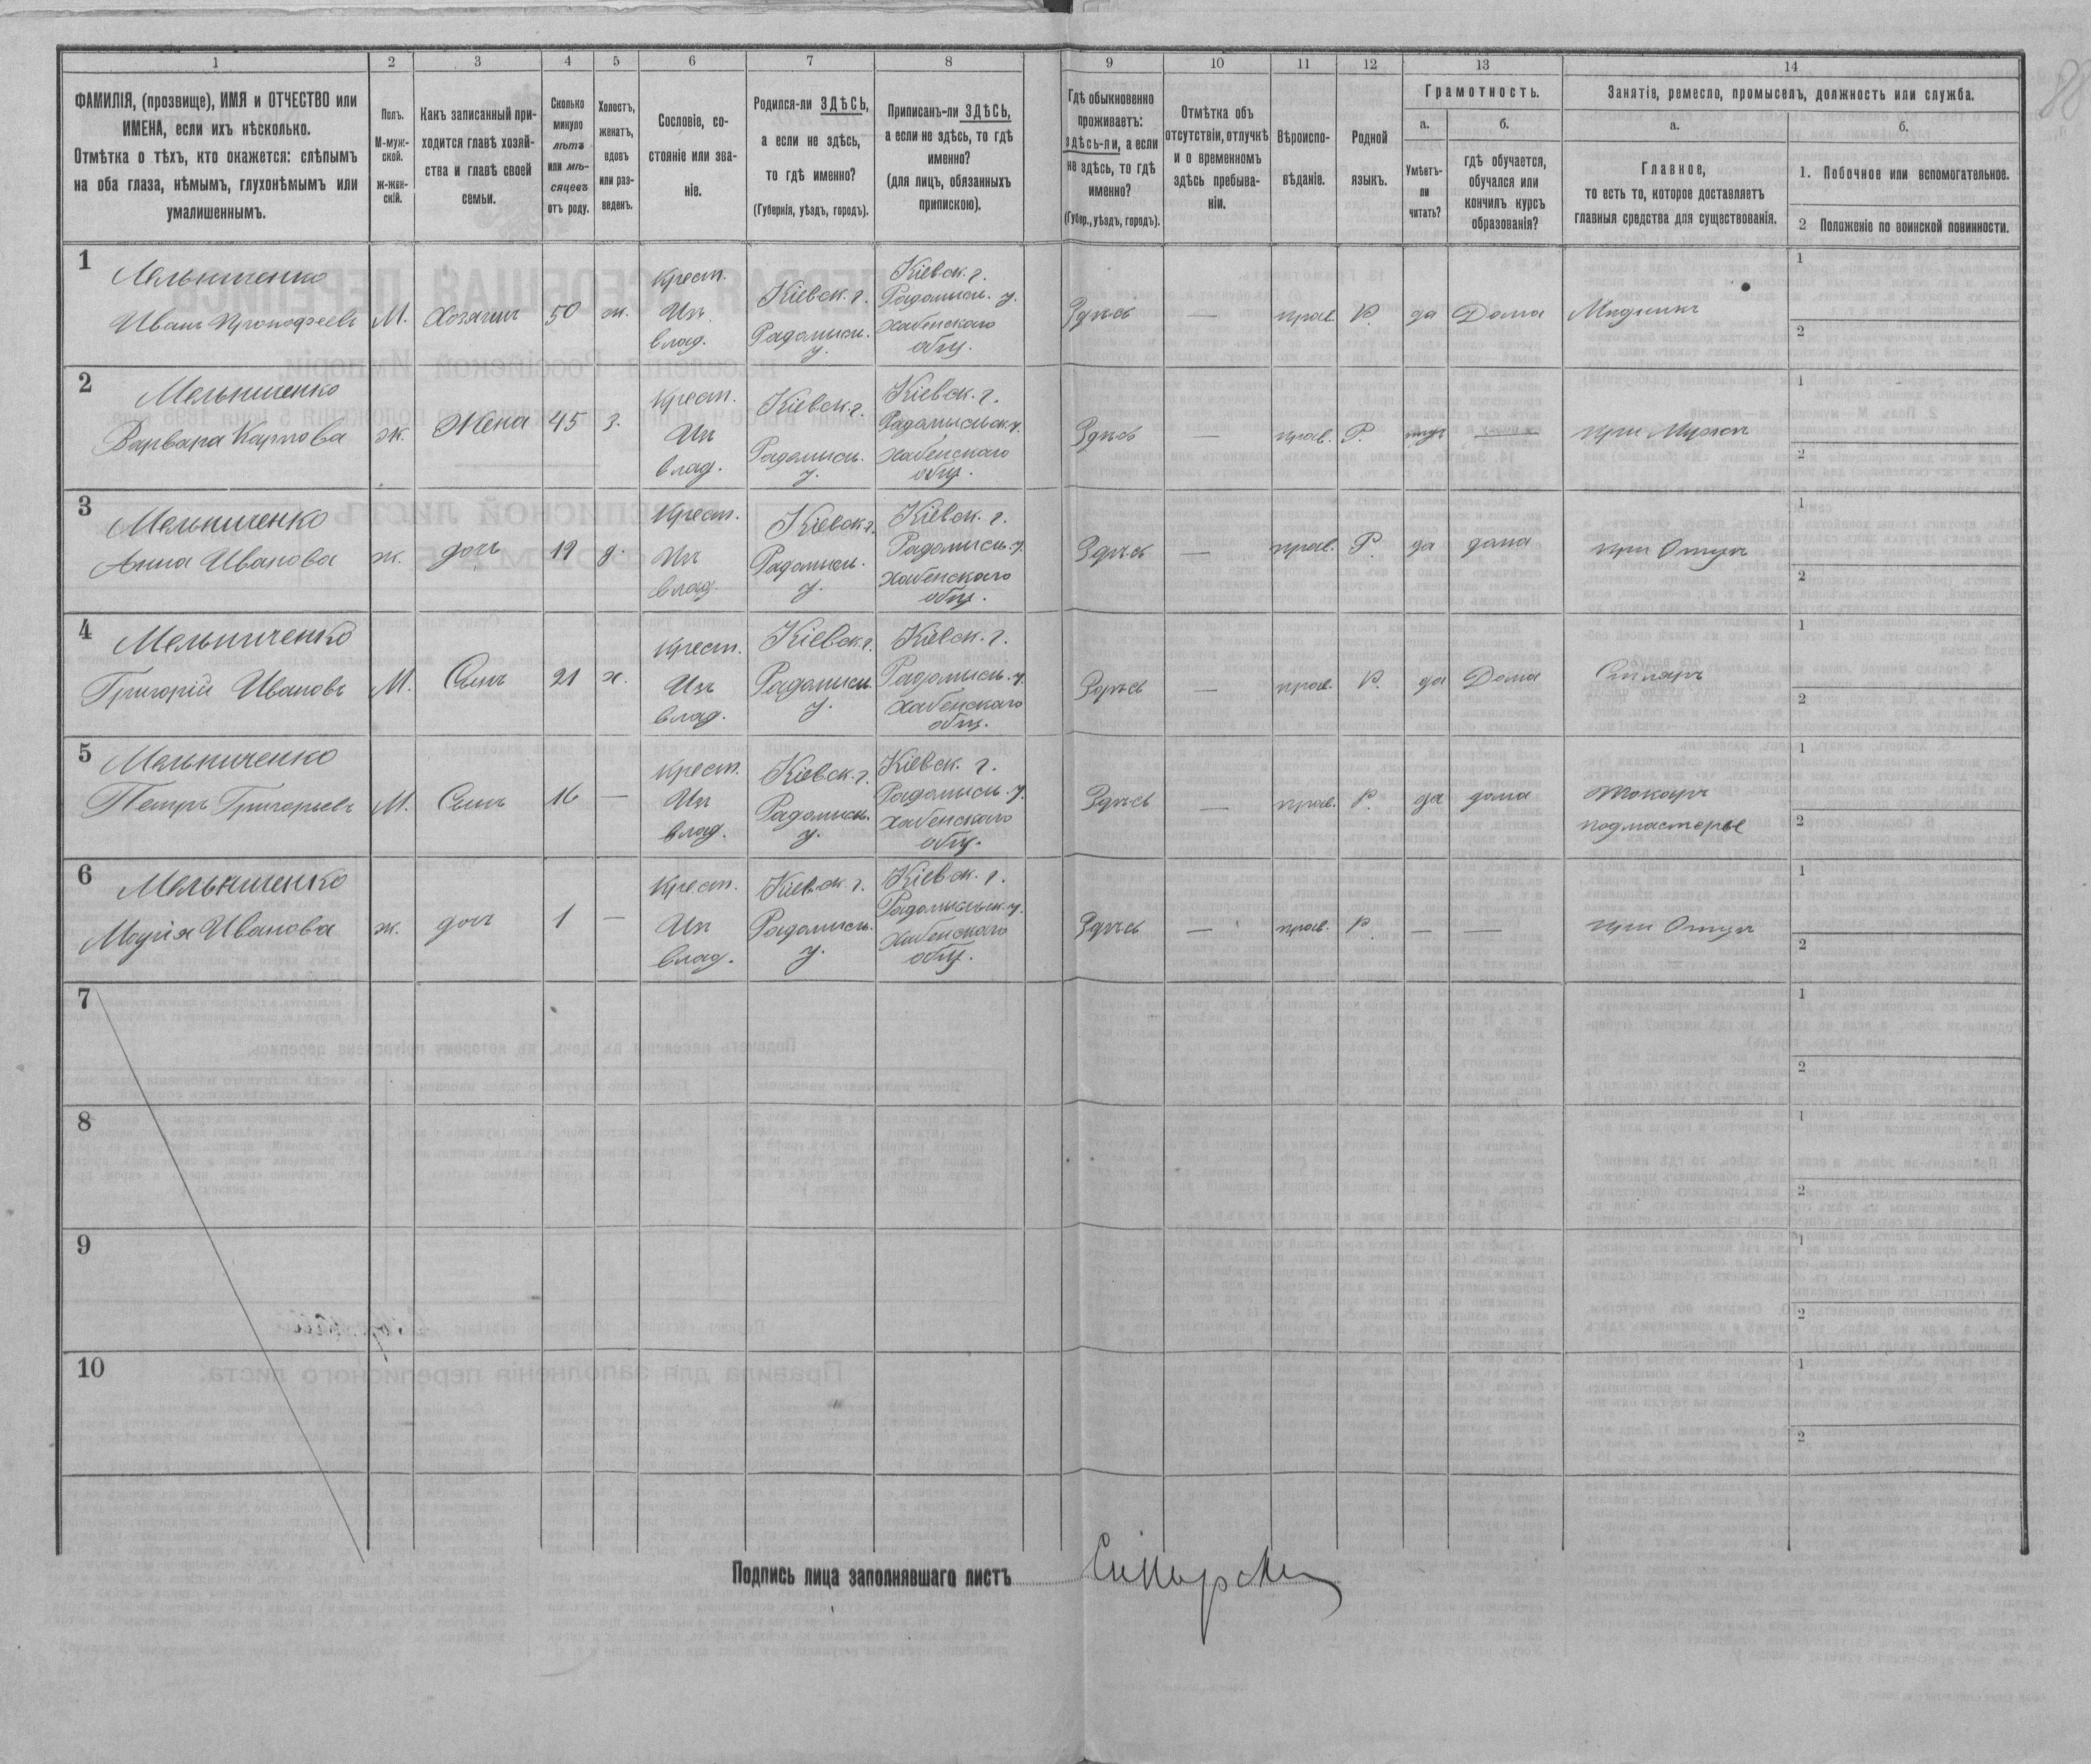 1 2 3 4 5 6 7 8 9 10 11 12 13 14
ФАМИЛІЯ, (прозвище), ИМЯ и ОТЧЕСТВО или
ИМЕНА, если ихъ нѣсколько.
Отмѣтка о тѣхъ, кто окажется: слѣпымъ
на оба глаза, нѣмымъ, глухонѣмымъ или
умалишеннымъ.
Полъ.
М-муж-
ской.
ж-жен-
скій.
Какъ записанный при-
ходится главѣ хозяй-
ства и главѣ своей
семьи.
Сколько
минуло
лѣтъ
или мѣ-
сяцевъ
отъ роду.
Холостъ,
женатъ,
вдовъ
или раз-
веденъ.
Сословіе, со-
стояніе или зва-
ніе.
Родился-ли ЗДѢСЬ,
а если не здѣсь,
то гдѣ именно?
(Губернія, уѣздъ, городъ).
Приписанъ-ли ЗДѢСЬ,
а если не здѣсь, то гдѣ
именно?
(для лицъ, обязанныхъ
припискою).
Гдѣ обыкновенно
проживаетъ:
здѣсь-ли, а если
не здѣсь, то гдѣ
именно?
(Губер., уѣздъ, городъ).
Отмѣтка объ
отсутствіи, отлучкѣ
и о временномъ
здѣсь пребыва-
ніи.
Вѣроиспо-
вѣданіе.
Родной
языкъ.
Грамотность.
а.
Умѣетъ-
ли
читать?
б.
гдѣ обучается,
обучался или
кончилъ курсъ
образованія?
Занятіе, ремесло, промыселъ, должность или служба.
а.
Главное,
то есть то, которое доставляетъ
главныя средства для существованія.
б.
1. Побочное или вспомогательное.
2 Положеніе по воинской повинности.
88
1
Мельниченко
Иванъ Прокофьевъ
М.
Хозяинъ
50
ж.
Крест.
Изъ
влад.
Кіевск. г.
Радомысл.
у.
Кіевск. г.
Радомысл. у.
Хабенскаго
общ.
Здѣсь
—
прав.
Р.
да
Дома
Мѣдникъ
1
2
2
Мельниченко
Варвара Карпова
ж.
Жена
45
з.
Крест.
Изъ
влад.
Кіевск. г.
Радомысл.
у.
Кіевск. г.
Радомысльск. у.
Хабенскаго
общ.
Здѣсь
—
прав.
Р.
нѣтъ
—
при Мужѣ
1
2
3
Мельниченко
Анна Иванова
ж.
дочь
19
д.
Крест.
Изъ
влад.
Кіевск. г.
Радомысл.
у.
Кіевск. г.
Радомысл. у.
Хабенскаго
общ.
Здѣсь
—
прав.
Р.
да
дома
при Отцѣ
1
2
4
Мельниченко
Григорій Ивановъ
М.
Сынъ
21
х.
Крест.
Изъ
влад.
Кіевск. г.
Радомысл.
у.
Кіевск. г.
Радомысл. у.
Хабенскаго
общ.
Здѣсь
—
прав.
Р.
да
Дома
Столяръ
1
2
5
Мельниченко
Петръ Григорьевъ
М.
Сынъ
16
—
Крест.
Изъ
влад.
Кіевск. г.
Радомысл.
у.
Кіевск. г.
Радомысл. у.
Хабенскаго
общ.
Здѣсь
—
прав.
Р.
да
дома
токарь
подмастерье
1
2
6
Мельниченко
Марія Иванова
ж.
дочь
1
—
Крест.
Изъ
влад.
Кіевск. г.
Радомысл.
у.
Кіевск. г.
Радомысльск. у.
Хабенскаго
общ.
Здѣсь
—
прав.
Р.
—
—
при Отцѣ
1
2
7
1
2
8
1
2
9
1
2
10
1
2
Подпись лица заполнявшаго листъ